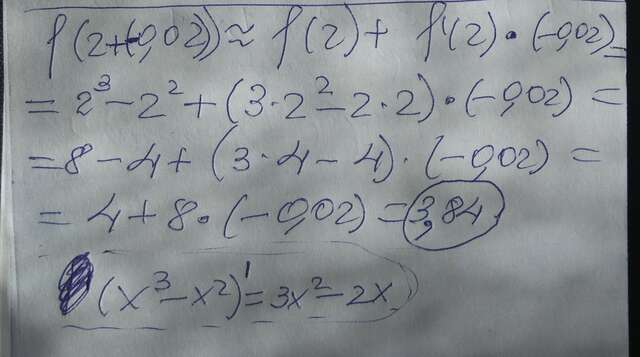 f(2+(-0,02)) ≈ f(2) + f'(2) · (-0,02) =
= 2³ - 2² + (3·2² - 2·2) · (-0,02) =
= 8 - 4 + (3·4 - 4) · (-0,02) =
= 4 + 8 · (-0,02) = 3,84
(x³ - x²)' = 3x² - 2x